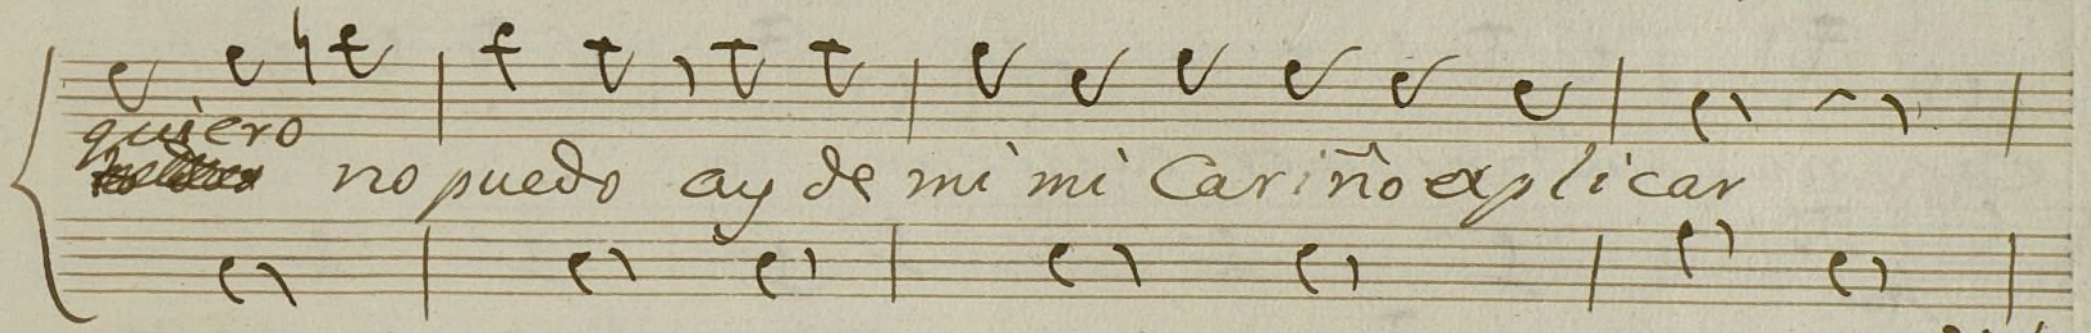 quiero
no puedo ay de mi mi Cariño explicar